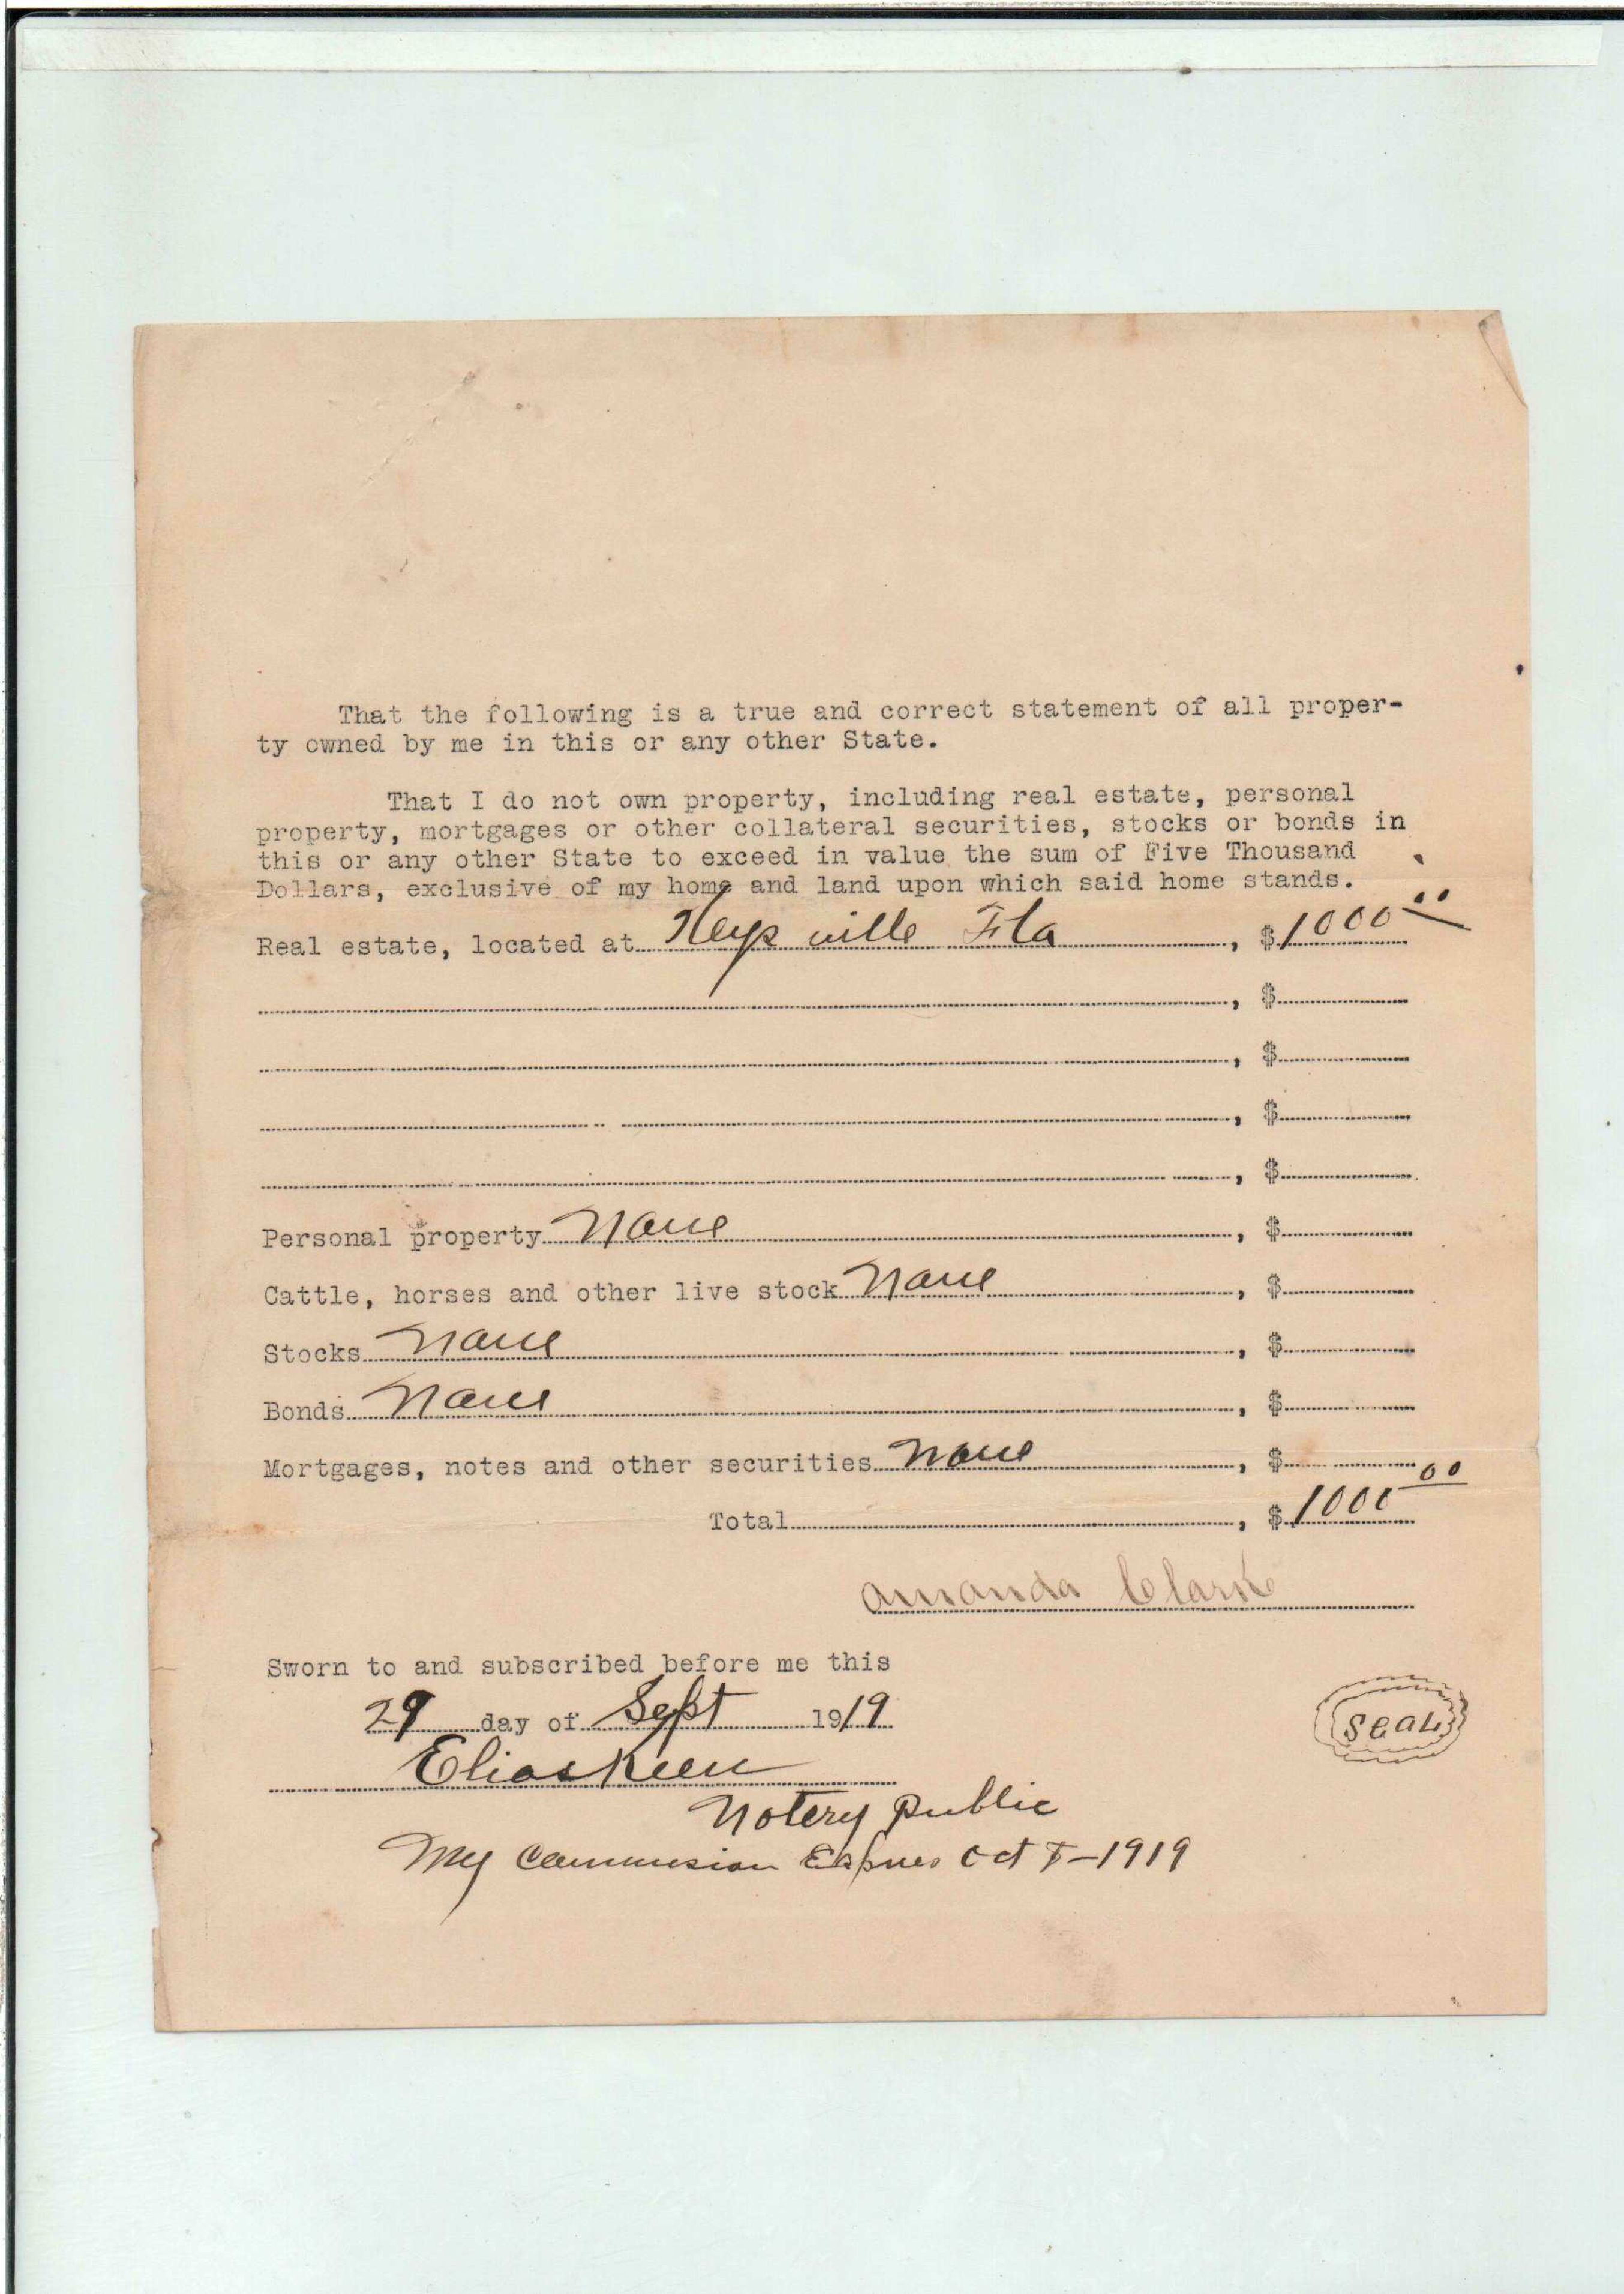 That the following is a true and correct statement of all proper-
ty owned by me in this or any other State.
That I do not own property, including real estate, personal
property, mortgages or other collateral securities, stocks or bonds in
this or any other State to exceed in value the sum of Five Thousand
Dollars, exclusive of my home and land upon which said home stands.
Real estate, located at Keysville Fla, $1000 00
, $
, $
, $
, $
Personal property None, $
Cattle, horses and other live stock None, $
Stocks None, $
Bonds None, $
Mortgages, notes and other securities None, $
Total, $1000 00
Amanda Clark
Sworn to and subscribed before me this
29 day of Sept 1919
Elias Keen
Seal
Notery Public
My Commision Expires Oct -1919